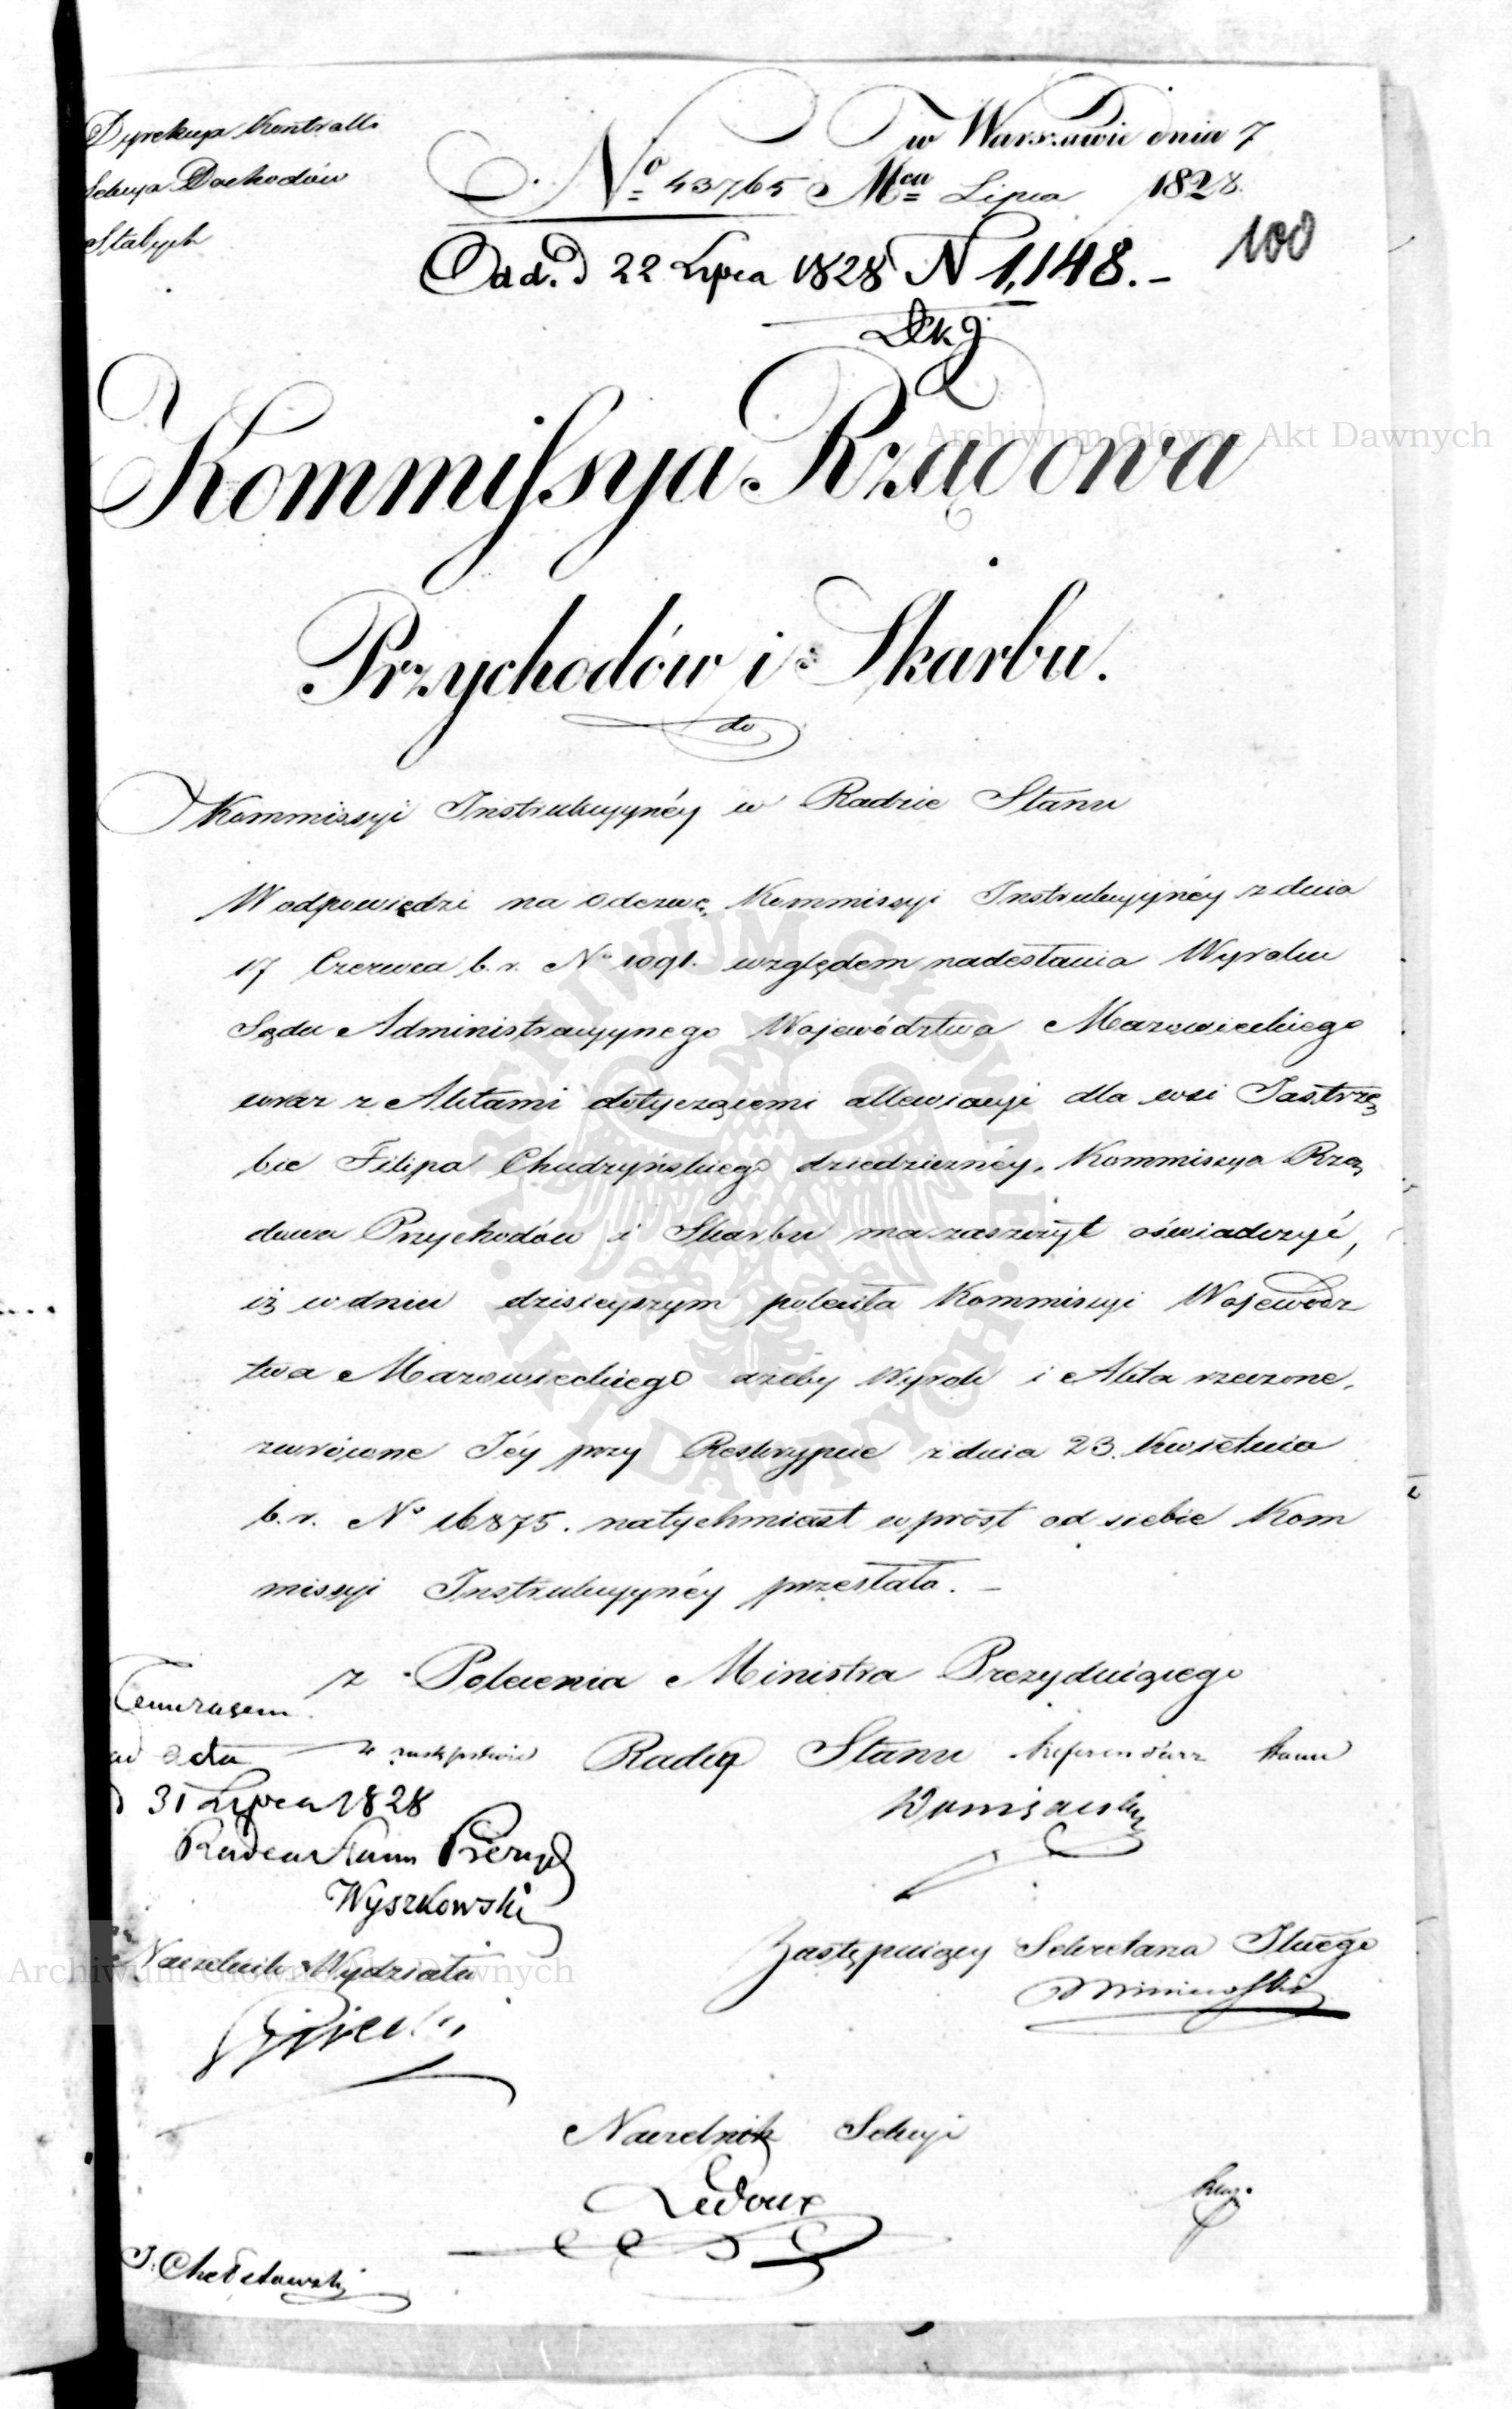 Dyrekcya Kontrolli
Sekcya Dochodów
Stałych
w Warszawie dnia 7
No 43765 Mca Lipca 1828.
100
Odd. D 22 Lipca 1828 N 1,148.-
Kommissya Rządowa
Archiwum Główne Akt Dawnych
Przychodów i Skarbu.
do
Kommissyi Instrukcyjnéy w Radzie Stanu
W odpowiedzi na Odezwę Kommissyi Instrukcyjnéy z dnia
17 Czerwca b. r. No 1091. względem nadesłania Wyroku
Sądu Administracyjnego Województwa Mazowieckiego
wraz z Aktami dotyczącemi allewiacyi dla wsi Jastrzę
bie Filipa Chudzyńskiego dziedzicznéy, Kommissya Rzą
dowa Przychodów i Skarbu ma zaszczyt oświadczyć,
iż w dniu dzisieyszym poleciła Kommissyi Wojewódz
twa Mazowieckiego ażeby Wyrok i Akta rzeczone,
zwrócone Jéy przy Reskrypcie z dnia 23. Kwietnia
b. r. No 16875. natychmiast wprost od siebie Kom
missyi Instrukcyjnéy przesłała. -
z Polecenia Ministra Prezyduiącego
Temczasem
ad acta
w zastępstwie Radcy Stanu Referendarz Stanu
d 31 Lipca 1828
Radca Stanu Prezyd
Wyszkowski
Naczelnik Wydziału
Zastępuiący Sekretarza Jlnego
Archiwum Główne Akt Dawnych
Naczelnik Sekcyi
Ledoux
ARCHIWUM GŁÓWNE
AKT DAWNYCH